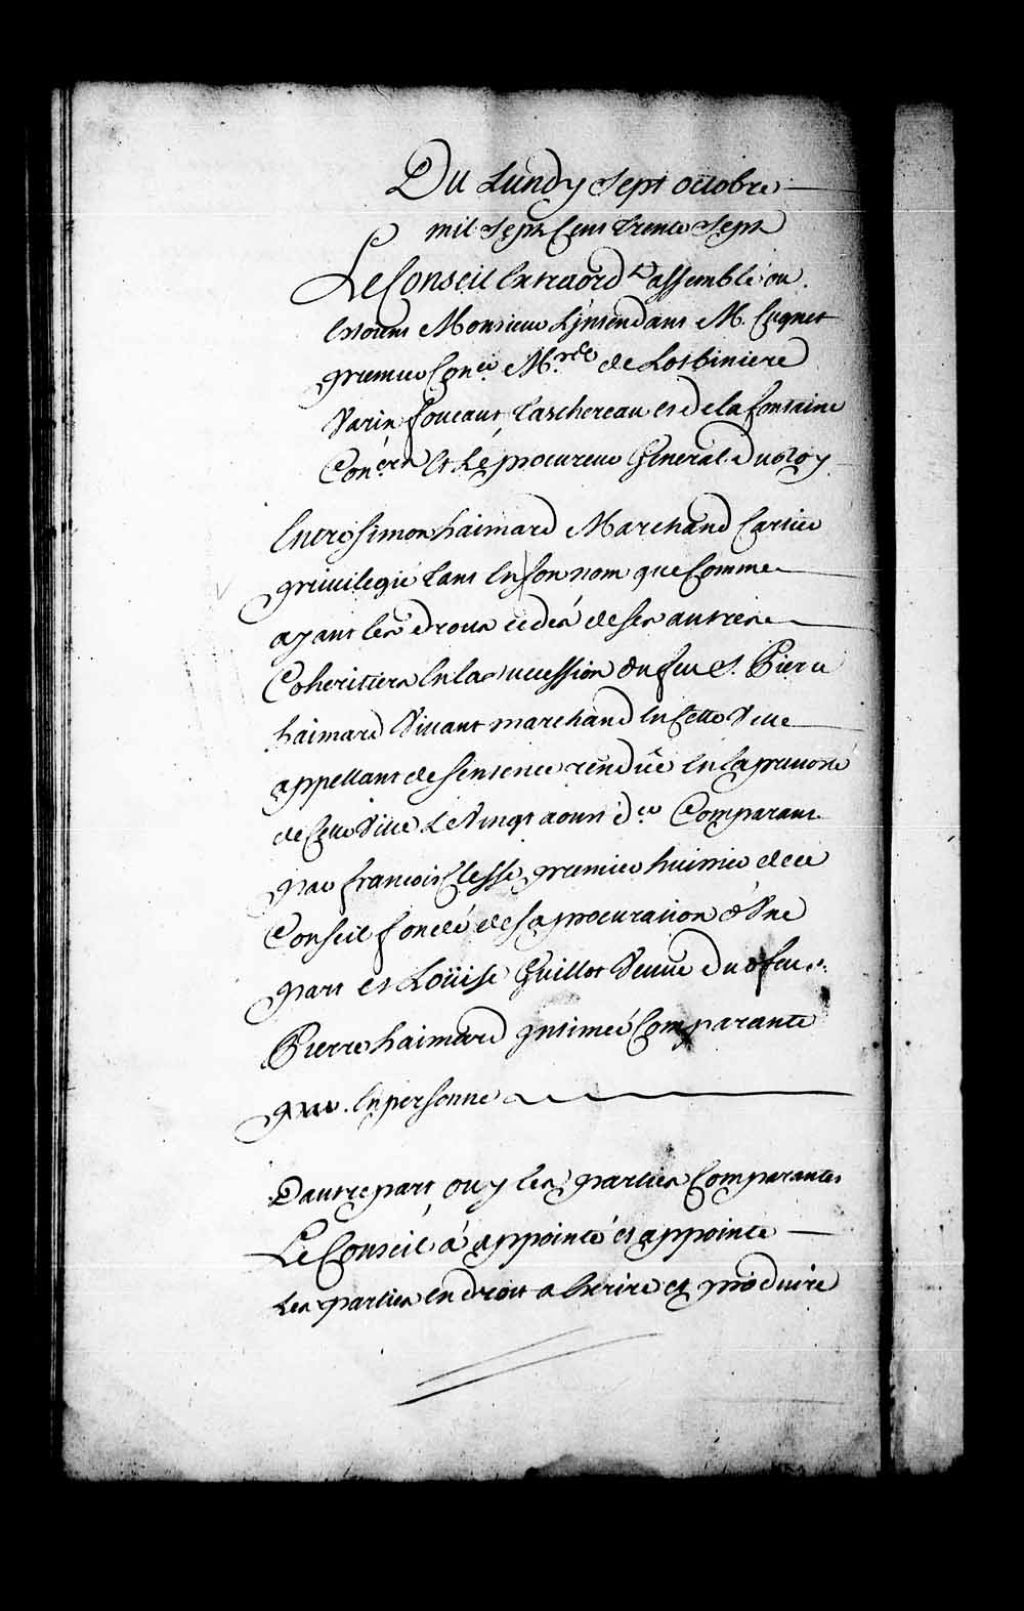 Du Lundy sept octobre
mil sept Cens trente sept
Le Conseil Extraord.re assemblé ou
Estoient Monsieur L'jntendant M. Cugnet
premier Con.er M.rs de Lotbiniere
Varin foucaut, taschereau et de la fontaine
Con.ers Et Le procureur General du Roy
Entre Simon haimard Marchand Cartier
privilegié tant En son nom que Comme
ayant les droits cedés de ses autres
Coheritiers En la succession du feu S. Pierre
haimard Vivant marchand En Cette Ville
appellant de Sentence rendüe En la prevosté
de Cette Ville Le Vingt aoust d.er Comparant
par francois Clesse premier huissier de ce
Conseil fondé de sa procuration d'Une
part et Loüise Guillot Veuve du d feu
Pierre haimard jntimeé Comparante
par En personne
D'autre part, ouy les parties Comparantes
Le Conseil à appointé et appointe
Les parties en droit a Escrire et produire